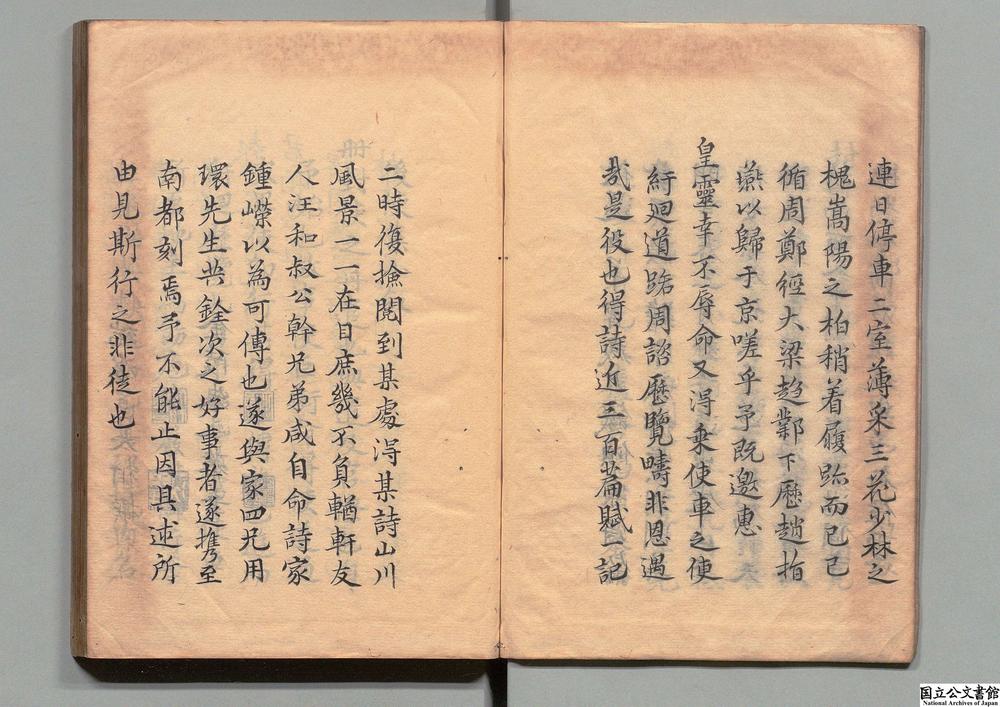 連日停車二室薄采三花少林之
槐嵩陽之柏稍着履跡而已已
循周鄭徑大梁趍鄴下歷趙指
燕以歸于京嗟乎予既邀惠
皇靈幸不辱命又得乗使車之使
紆廻道路周諮歷覽疇非恩遇
㦲是役也得詩近三百萹賦一記
二時復撿閱到某處淂某詩山川
風景一一在目庶幾不負輶軒友
人汪和叔公幹兄弟咸自命詩家
鍾嶸以為可傳也遂與家四兄用
環先生共銓次之好事者遂攜至
南都刻焉予不能止因具述所
由見斯行之非徒也
国立公文書館
National Archives of Japan